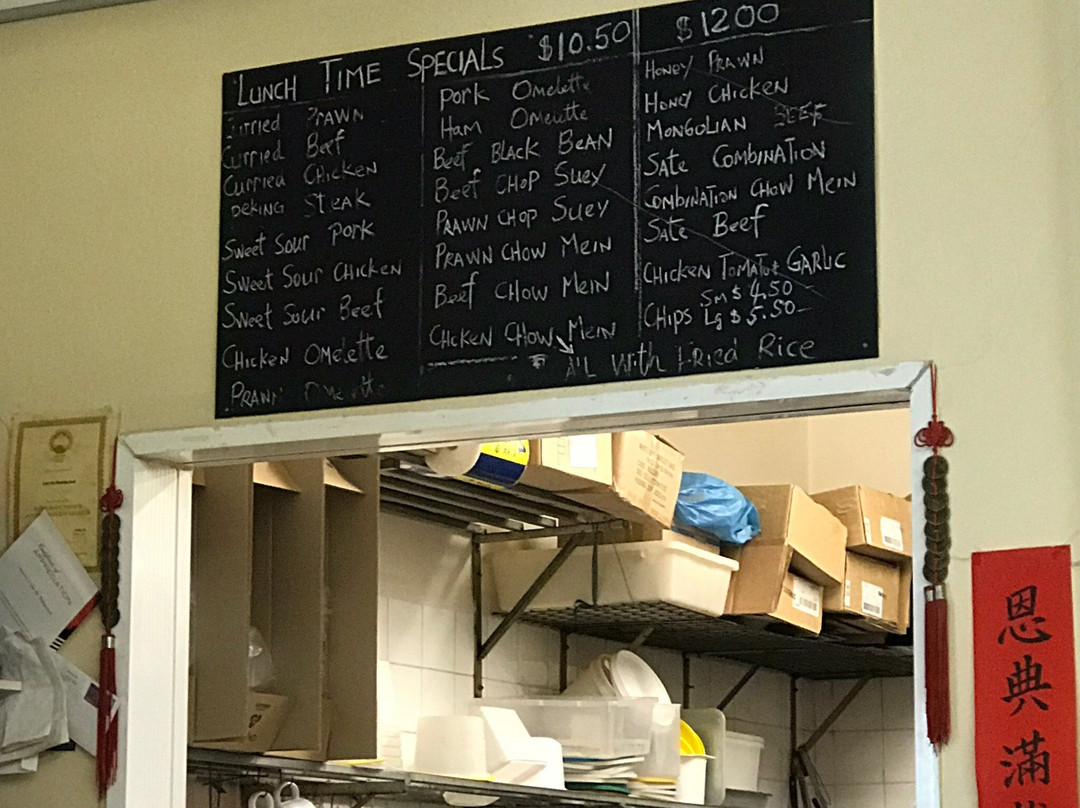 LUNCH TIME SPECIALS $10.50
Curried PRAWN
Curried Beef
Curried CHICKEN
PEKING Steak
Sweet Sour Pork
Sweet Sour CHICKEN
Sweet Sour Beef
CHICKEN OMelette
PRAWN Omelette
Pork Omelette
HAM Omelette
Beef BLACK BEAN
Beef CHOP Suey
PRAWN CHOP Suey
PRAWN CHOW MEIN
Beef CHOW MEIN
CHICKEN CHOW MEIN
$1200
HONEY PRAWN
HONEY CHICKEN
MONGOLIAN BEEF
SATE COMBINATION
COMBINATION CHOW MEIN
SATE Beef
CHICKEN TOMATOE GARLIC
CHIPS Sm $4.50
Lg $5.50
A'LL WITH FRied Rice
恩典滿